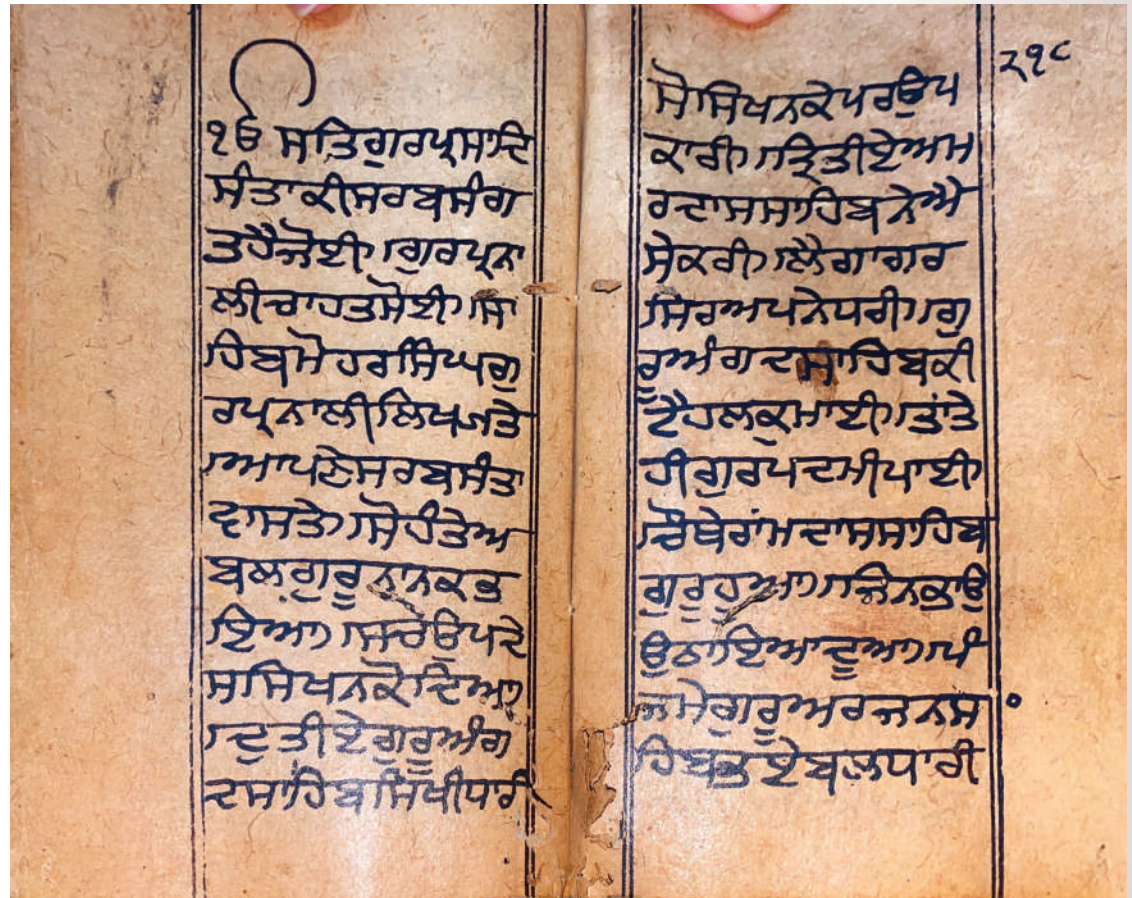 ੴ ਸਤਿਗੁਰਪ੍ਰਸਾਦਿ
ਸੰਤਾਕੀਸਰਬਸੰਗ
ਤਹੈਜੋਈ।ਗੁਰਪ੍ਰਨਾ
ਲੀਚਾਹਤਸੋਈ।ਸਾ
ਹਿਬਮੋਹਰਸਿੰਘਗੁ
ਰਪ੍ਰਨਾਲੀਲਿਖਜਤੇ
।ਆਪਣੇਸਰਬਸੰਤਾ
ਵਾਸਤੇ।ਸੋਹੰਤੇਅ
ਬਲਗੁਰੂਨਾਨਕਭ
ਇਆ।ਸਚਉਪਦੇ
ਸਸਿਖਨਕੋਦਿਆ
।ਦੁਤੀਏਗੁਰੂਅੰਗ
ਦਸਾਹਿਬਸਿਖੀਧਾਰੀ
੨੧੮
ਸੋਸਿਖਨਕੇਪਰਉਪ
ਕਾਰੀ।ਤ੍ਰਿਤੀਏਅਮ
ਰਦਾਸਸਾਹਿਬਨੇਐ
ਸੇਕਰੀ।ਲੈਗਾਗਰ
ਸਿਰਅਪਨੇਧਰੀ।ਗੁ
ਰੂਅੰਗਦਸਾਹਿਬਕੀ
ਟੈਹਲਕੁਮਾਈ।ਤਾਂਤੇ
ਹੀਗੁਰਪਦਮੀਪਾਈ।
ਚੌਥੇਰਾਂਮਦਾਸਸਾਹਿਬ
ਗੁਰੂਹੂਆ।ਜਿਨਕਾਉ
ਉਠਾਇਆਦੂਆ।ਪੰ
ਜਮੇਗੁਰੂਅਰਜਨਸ
ਹਿਬਭਏਬਲਧਾਰੀ